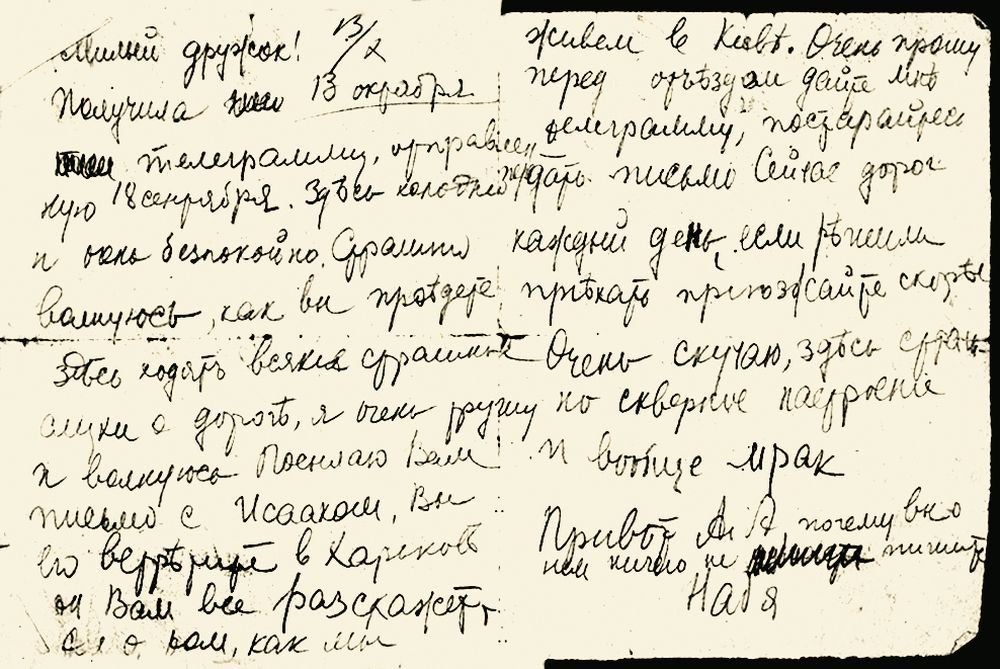 Милый дружок! 13/X
Получила 13 октября
телеграмму, отправлен
ную 18 сентября. Здѣсь холодно
и очень безпокойно. Страшно
волнуюсь, как вы проѣдете
Здѣсь ходятъ всякие страшные
слухи о дорогѣ, я очень грущу
и волнуюсь Посылаю Вам
письмо с Исааком, Вы
его встрѣтите в Харьковѣ
он Вам все разскажет,
о том, как мы
живем в Кіевѣ. Очень прошу
перед отъѣздом дайте мнѣ
телеграмму, постарайтесь
дать письмо Сейчас дорог
каждый день, если рѣшили
пріѣхать пріѣзжайте скорѣе
Очень скучаю, здѣсь страш
но скверное настроеніе
и вообще мрак
Привѣт А. А. почему
нам ничего не пишите
Надя